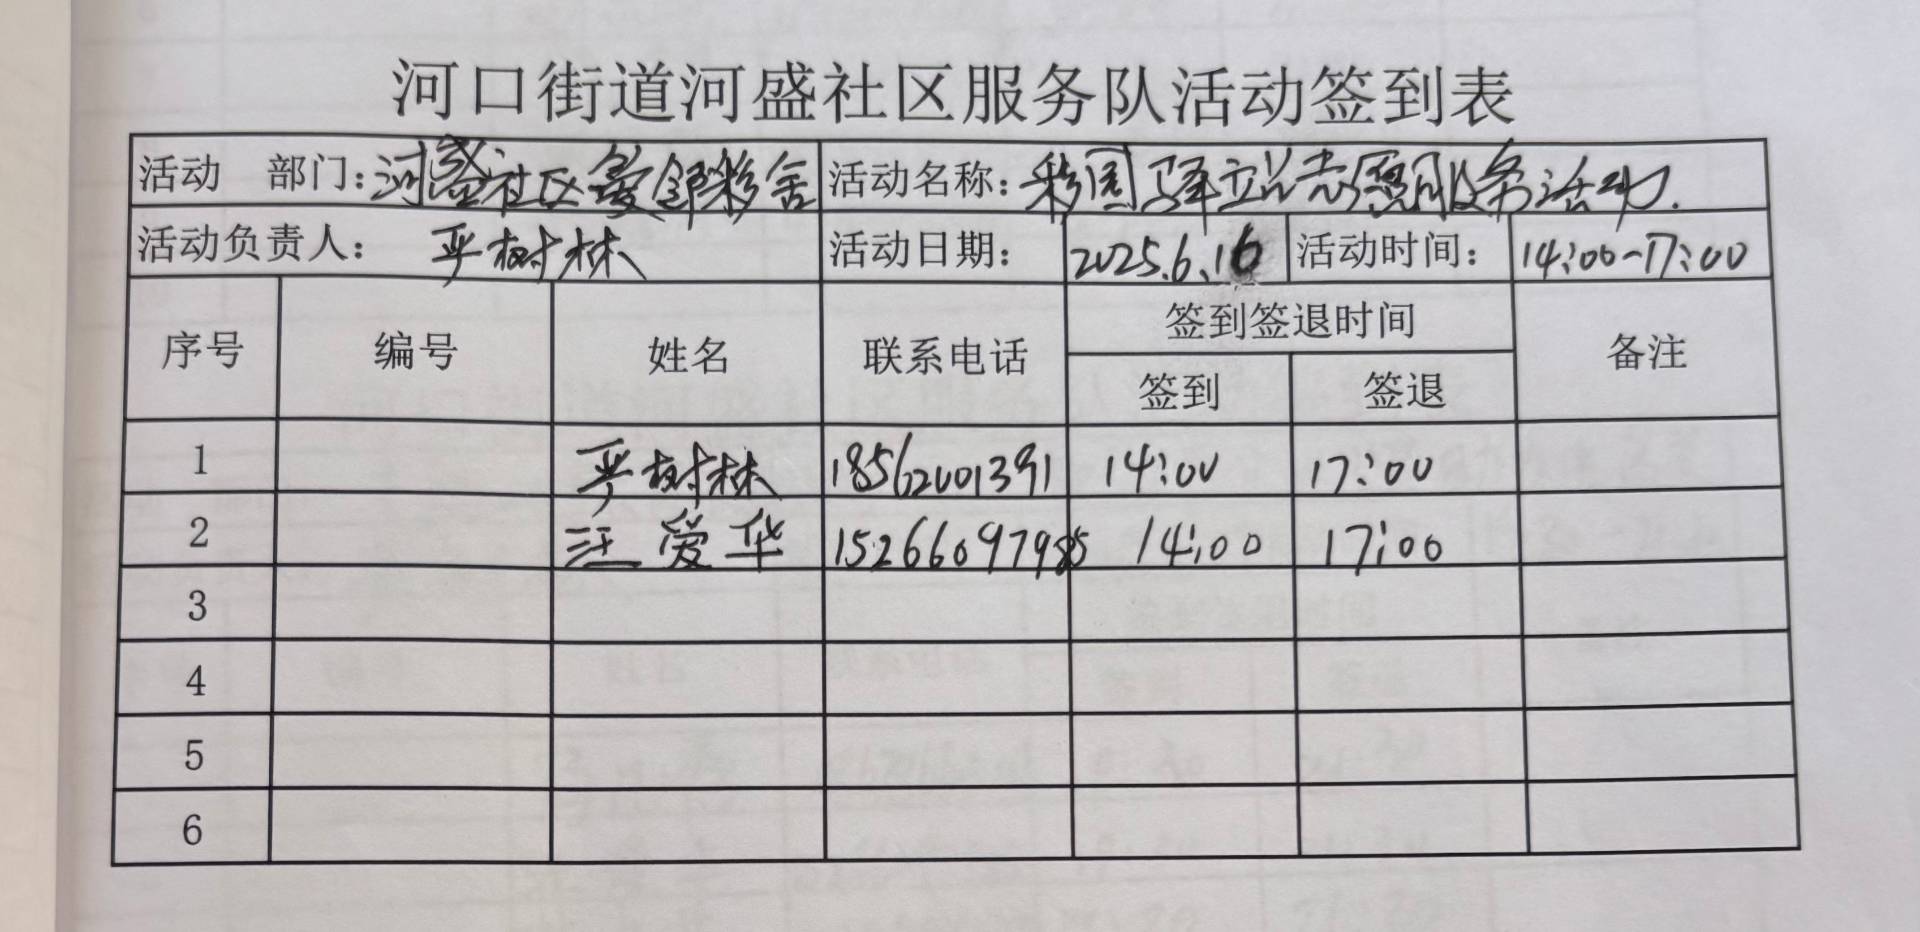 河口街道河盛社区服务队活动签到表
活动 部门：河盛社区爱邻彩舍 活动名称：彩园驿站志愿服务活动.
活动负责人： 严树林 活动日期： 2025.6.16 活动时间： 14:00-17:00
序号 编号 姓名 联系电话 签到签退时间 备注
签到 签退
1 严树林 18562001391 14:00 17:00
2 汪爱华 15266097985 14:00 17:00
3
4
5
6